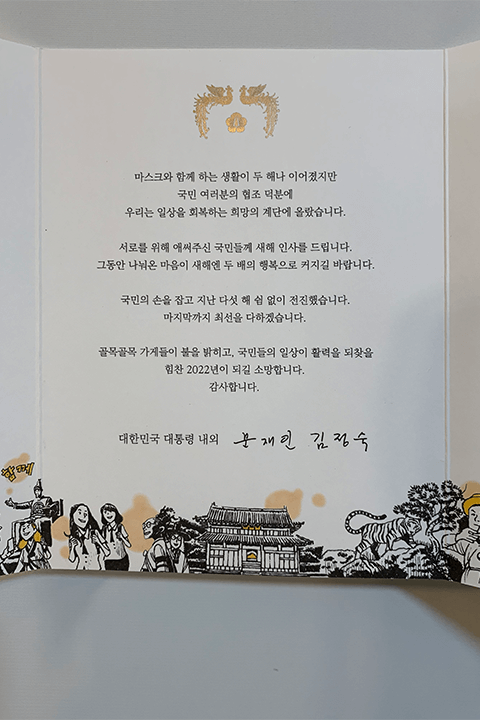 마스크와 함께 하는 생활이 두 해나 이어졌지만
국민 여러분의 협조 덕분에
우리는 일상을 회복하는 희망의 계단에 올랐습니다.
서로를 위해 애써주신 국민들께 새해 인사를 드립니다.
그동안 나눠온 마음이 새해엔 두 배의 행복으로 커지길 바랍니다.
국민의 손을 잡고 지난 다섯 해 쉼 없이 전진했습니다.
마지막까지 최선을 다하겠습니다.
골목골목 가게들이 불을 밝히고, 국민들의 일상이 활력을 되찾을
힘찬 2022년이 되길 소망합니다.
감사합니다.
대한민국 대통령 내외 문재인 김정숙
함께